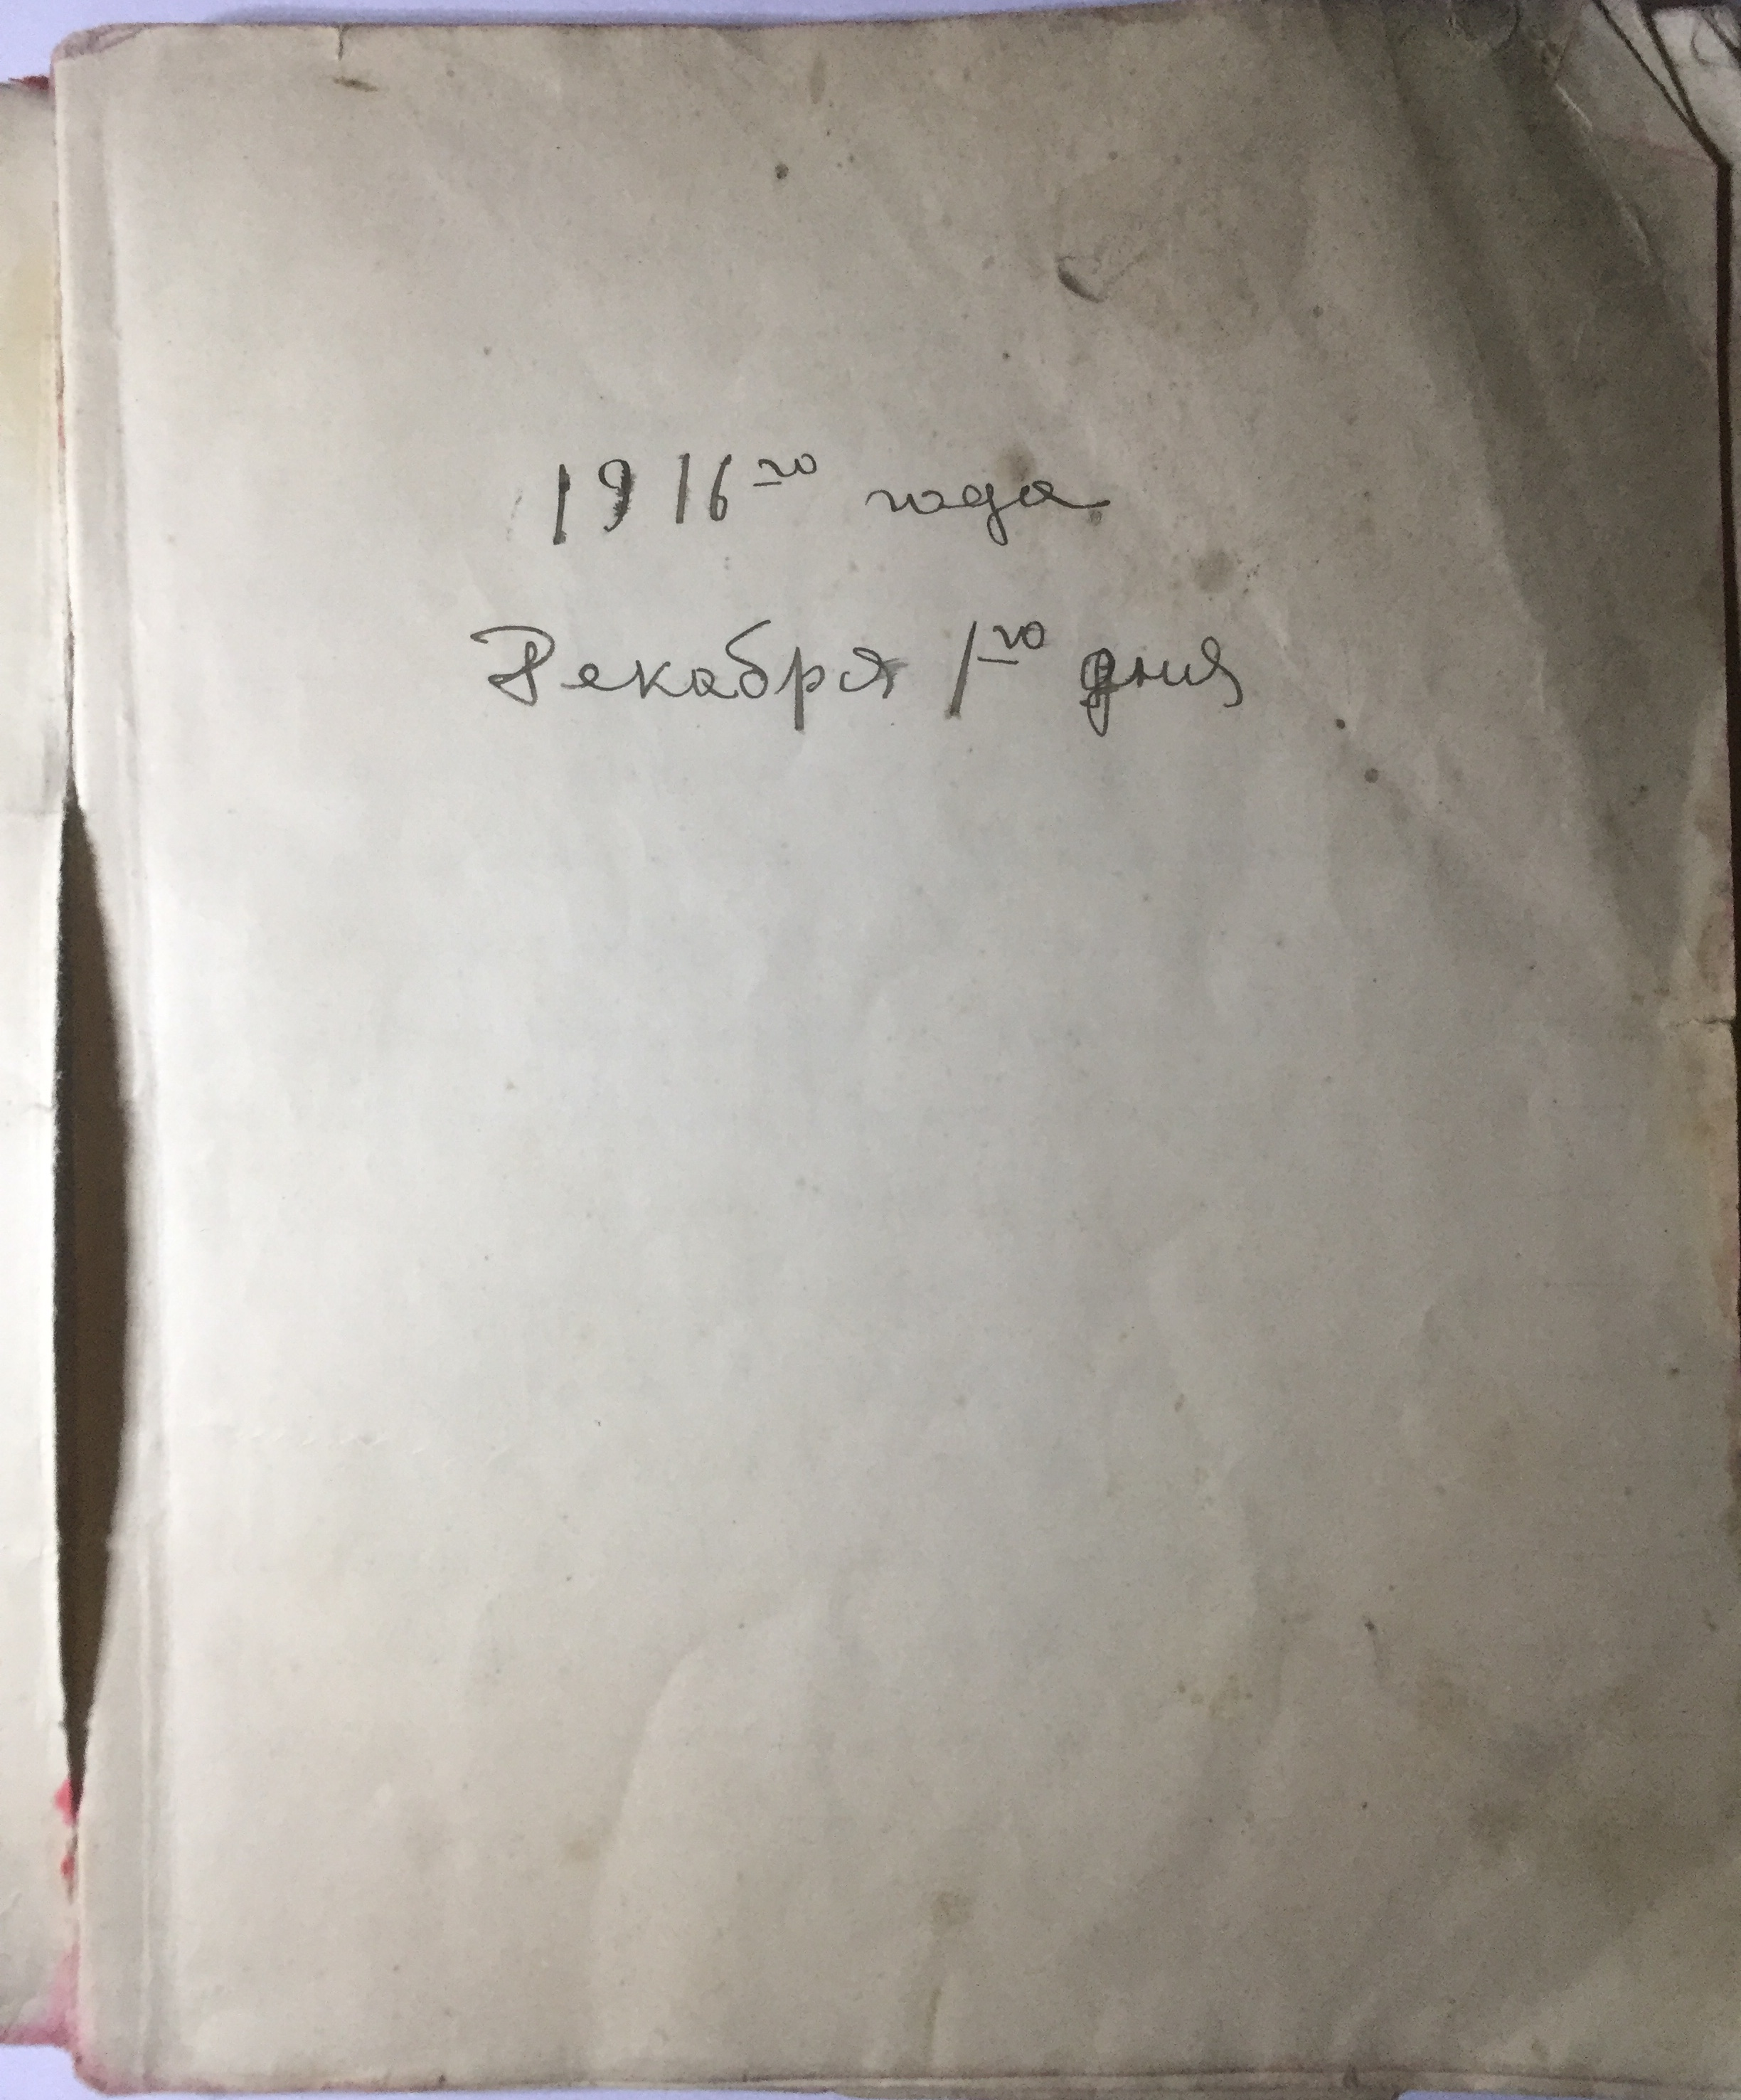 1916го года
Декабря 1го дня